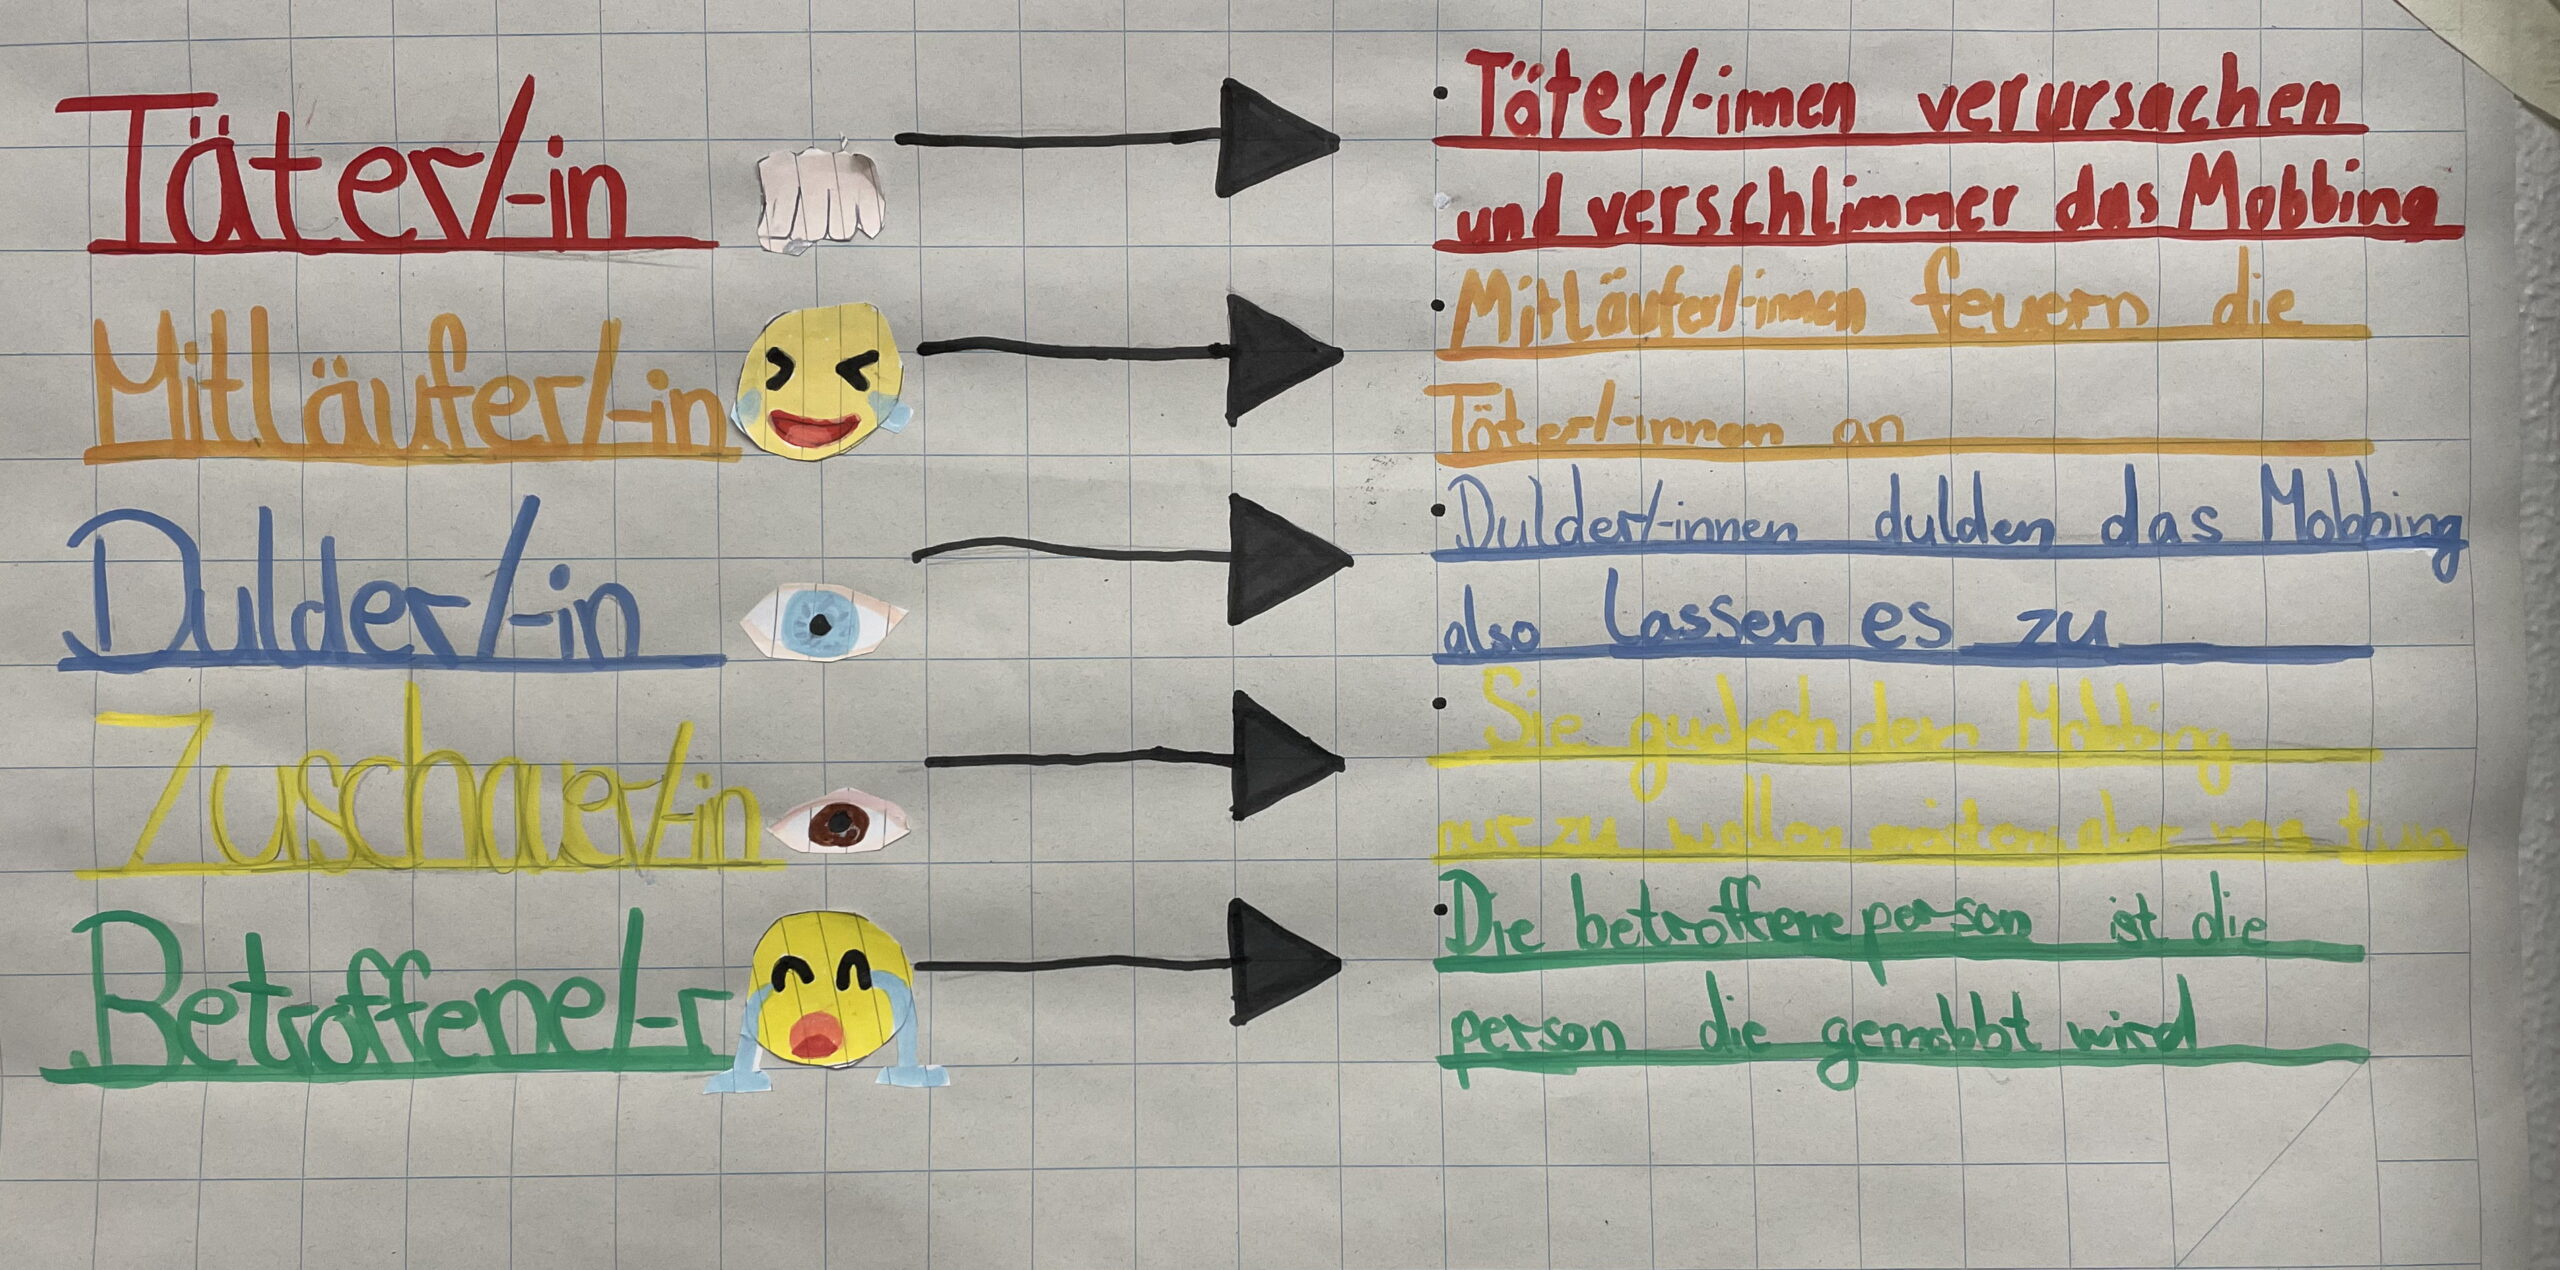 Täter/-in
Täter/-innen verursachen
und verschlimmer das Mobbing
Mitläufer/-in
Mitläufer/-innen feuern die
Täter/-innen an
Dulder/-in
Dulder/-innen dulden das Mobbing
also lassen es zu
Zuschauer/-in
Sie gucken dem Mobbing
nur zu wollen aber was tun
Betroffene/-r
Die betroffene person ist die
person die gemobbt wird